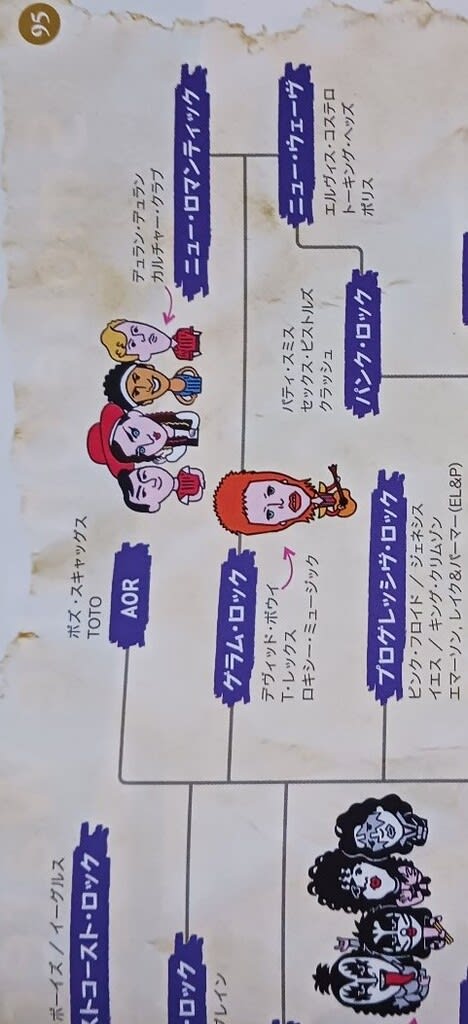 95
ボーイズ / イーグルス
ストコースト・ロック
ボズ・スキャッグス
TOTO
AOR
デュラン・デュラン
カルチャー・クラブ
ニュー・ロマンティック
・ロック
プレイン
グラム・ロック
デヴィッド・ボウイ
T・レックス
ロキシー・ミュージック
パティ・スミス
セックス・ピストルズ
クラッシュ
パンク・ロック
ニュー・ウェーヴ
エルヴィス・コステロ
トーキング・ヘッズ
ポリス
プログレッシヴ・ロック
ピンク・フロイド / ジェネシス
イエス / キング・クリムゾン
エマーソン, レイク&パーマー(EL&P)